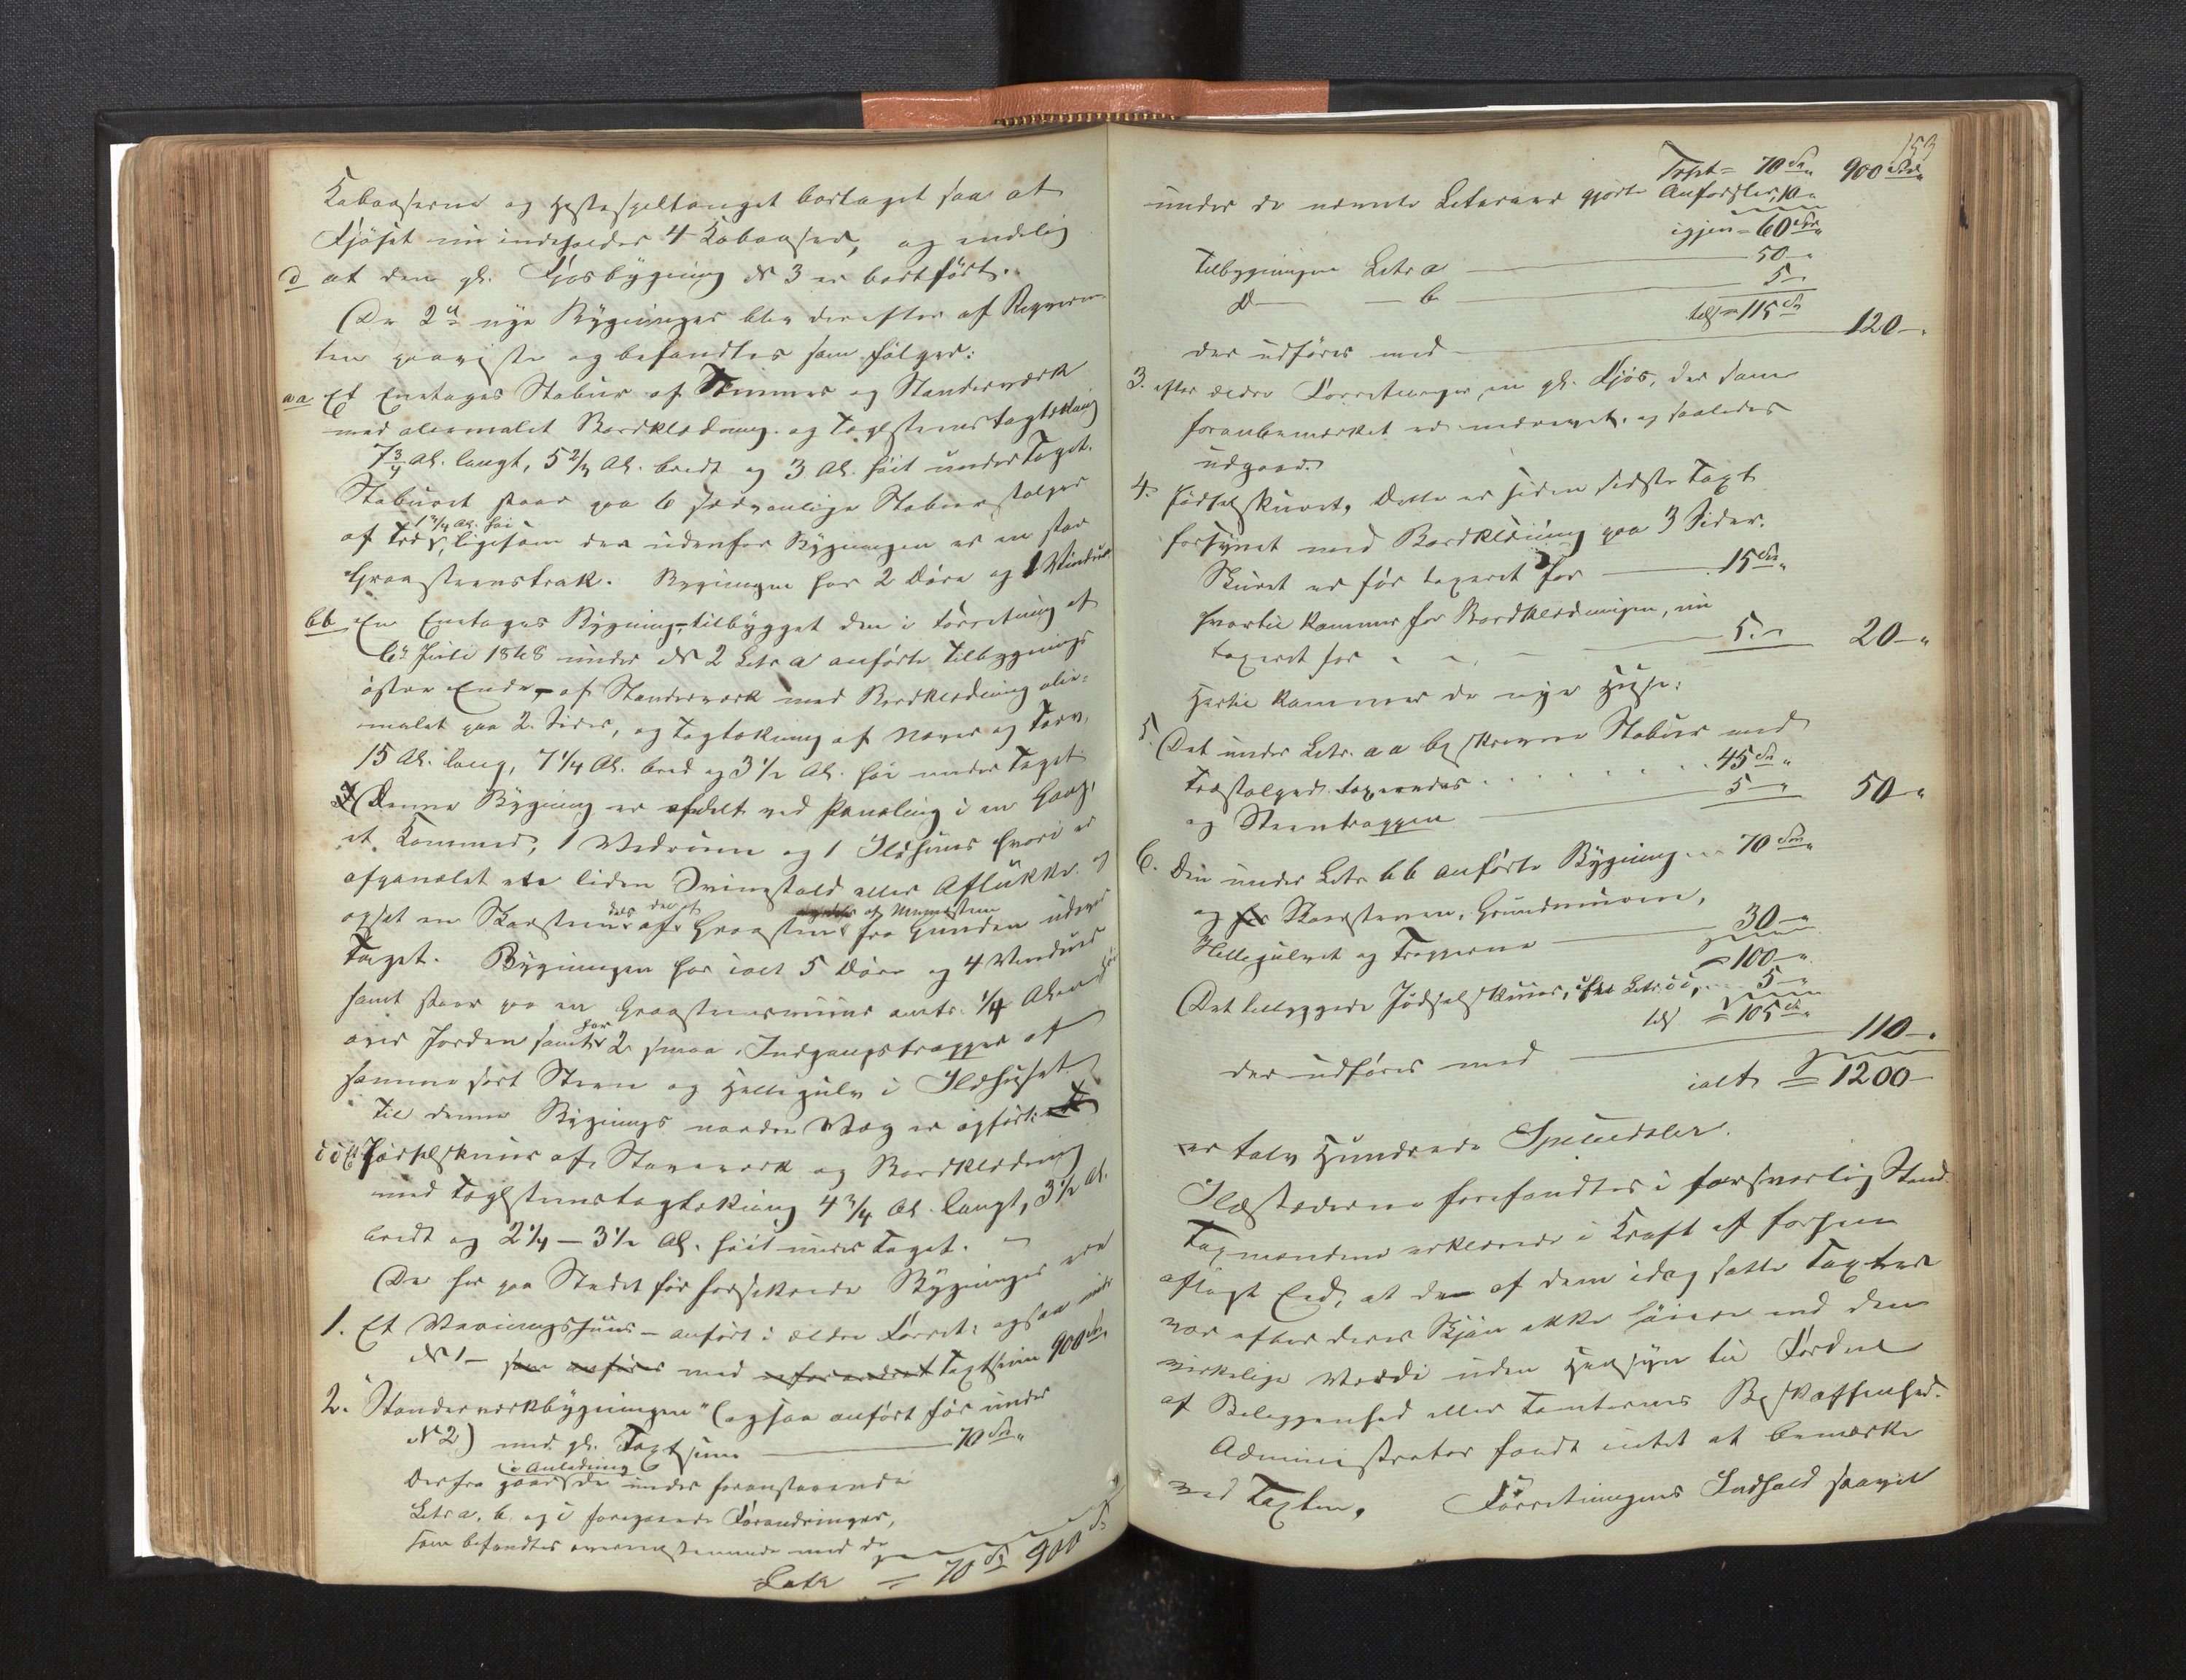 Kobaaserne og Hestespiltouget borttaget saa at
Fjøset nu indeholder 4 Kobaaser, og endelig
d at den gl. Fjøsbygning № 3 er bortført.
De 2de nye Bygninger blev derefter af Reqviren-
ten paaviste og befandtes som følger:
aa Et Enetages Stabur af Tømmer og Standerværk
med oliemalet Bordklædning og Taglsteenstagtækning
7 3/4 Al. langt, 5 2/3 Al. bredt og 3 Al. høit under Taget.
Staburet staar paa 6 sædvanlige Staburstolper
af Træ 1 3/4 Al. høi, ligesom der udenfor Bygningen er en stor
Graasteenstrap. Bygningen har 2 Døre og 1 Vindue
bb En Enetages Bygning, tilbygget den i Forretning af
6te Juli 1868 under № 2 Litr a anførte Tilbygnings
østre Ende, af Standerværk med Bordklædning olie-
malet paa 2 Sider, og Tagtækning af Næver og Torv,
15 Al. lang, 7 1/4 Al. bred og 3 1/2 Al. høi under Taget
Denne Bygning er afdelt ved Paneling i en Gang,
et Kammer, 1 Vedrum og 1 Ildhuus hvori er
afpanelet en liden Sviinestald eller Aflukke og
opsat en Skorsteen dels af Graasteen dels af Muursteen fra Grunden udover
Taget. Bygningen har ialt 5 Døre og 4 Vinduer
samt staar paa en Graasteensmuur omtr. 1/4 Alen høi
over Jorden samt har 2 smaa Indgangstrapper af
samme sort Steen og Hellegulv i Ildhuset
Til denne Bygnings nordre Væg er opført:
cc Et Fødselskuur af Stavværk og Bordklædning
med Taglsteenstagtækning 4 3/4 Al. langt, 3 1/2 Al.
bredt og 2 1/4 – 3 1/2 Al. høit under Taget.
De her paa Stedet før forsikrede Bygninger ere
1. Et Vaaningshuus – anført i ældre Forretn. ogsaa under
№ 1 – som anføres med uforandret Taxtsum 900 Sp.
2. "Standerværkbygningen" (ogsaa anført før under
№ 2) med gl. Taxtsum — 70 Sp.
Derfra gaar i Anledning de under foranstaaende
Litr a, b og c foregaaede Forandringer,
som befandtes overensstemmende med de
Latr = 70 Sp 900 Sp
153
Trpt = 70 Sp. 900 Sp.
under de nævnte Literaer gjorte Anførsler, 10 "
igjen = 60 Sp. "
Tilbygningen Litr a — 50 "
D — — b — 5 "
tils. = 115 Sp
der udføres med — 120 — "
3. efter ældre Forretninger en gl. Fjøs, der som
foranbemærket er nedrevet, og saaledes
udgaar.
4. Fødselskuret. Dette er siden sidste Taxt
forsynet med Bordklædning paa 3 Sider.
Skuret er før taxeret for — 15 Sp. "
hvortil kommer for Bordklædningen, nu
taxeret for — 5 " 20 — "
Hertil kommer de nye Huse:
5. Det under Litr. aa beskrevne Stabur med
Træstolper taxeredes . . . . . . 45 Sp. "
og Steentrappen — 5 — " 50 — "
6. Den under Litr. bb anførte Bygning — 70 Sp. "
og for Skorstenen, Grundmuren,
Hellegulvet og Trapperne — 30 — "
= 100 — "
Det tilbyggede Fødselskuur, Litr. cc, — 5 — "
tils. = 105 Sp. "
der udføres med — 110 — "
ialt = 1200 —
er tolv Hundrede Speciedaler.
Ildstederne forefandtes i forsvarlig Stand.
Taxmændene erklærede i Kraft af forhen
aflagt Eed, at den af dem idag satte Taxt
var efter deres Skjøn ikke høiere end den
virkelige Værdi uden Hensyn til Fordeel
af Beliggenhed eller Tomternes Beskaffenhed.
Administrator fandt intet at bemærke
ved Taxten. Forretningens Indhold saavel